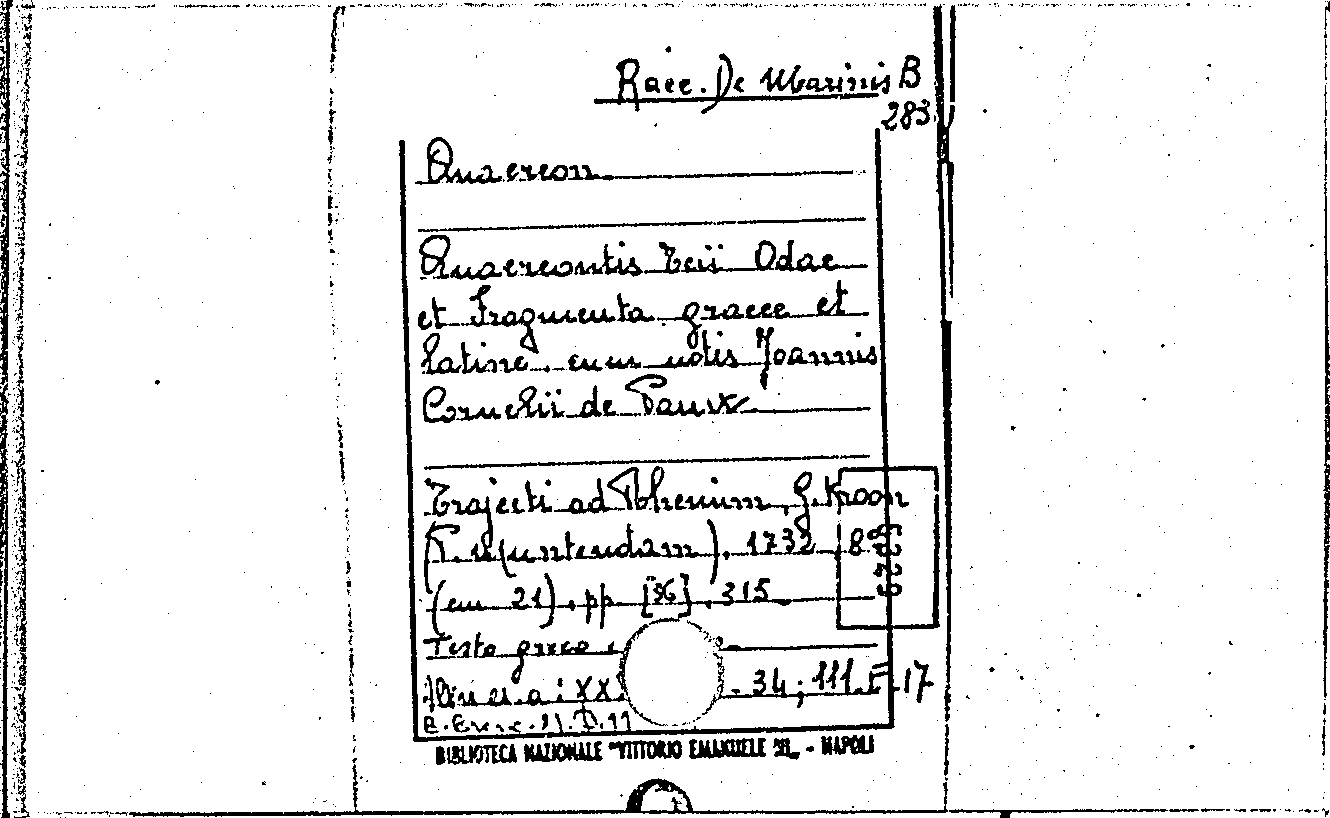 Racc. De Marinis B
283
Anacreon
Anacreontis Teii Odae
et Fragmenta graece et
latine cum notis Joannis
Cornelii de Pauw
Trajecti ad Rhenum, G. Kroon
(T. u(untendam), 1732, 8º
(cm 21), pp [36], 315
Testo greco
Altri es. a: XX 34; 111.E.17
BIBLIOTECA NAZIONALE "VITTORIO EMANUELE III„ - NAPOLI